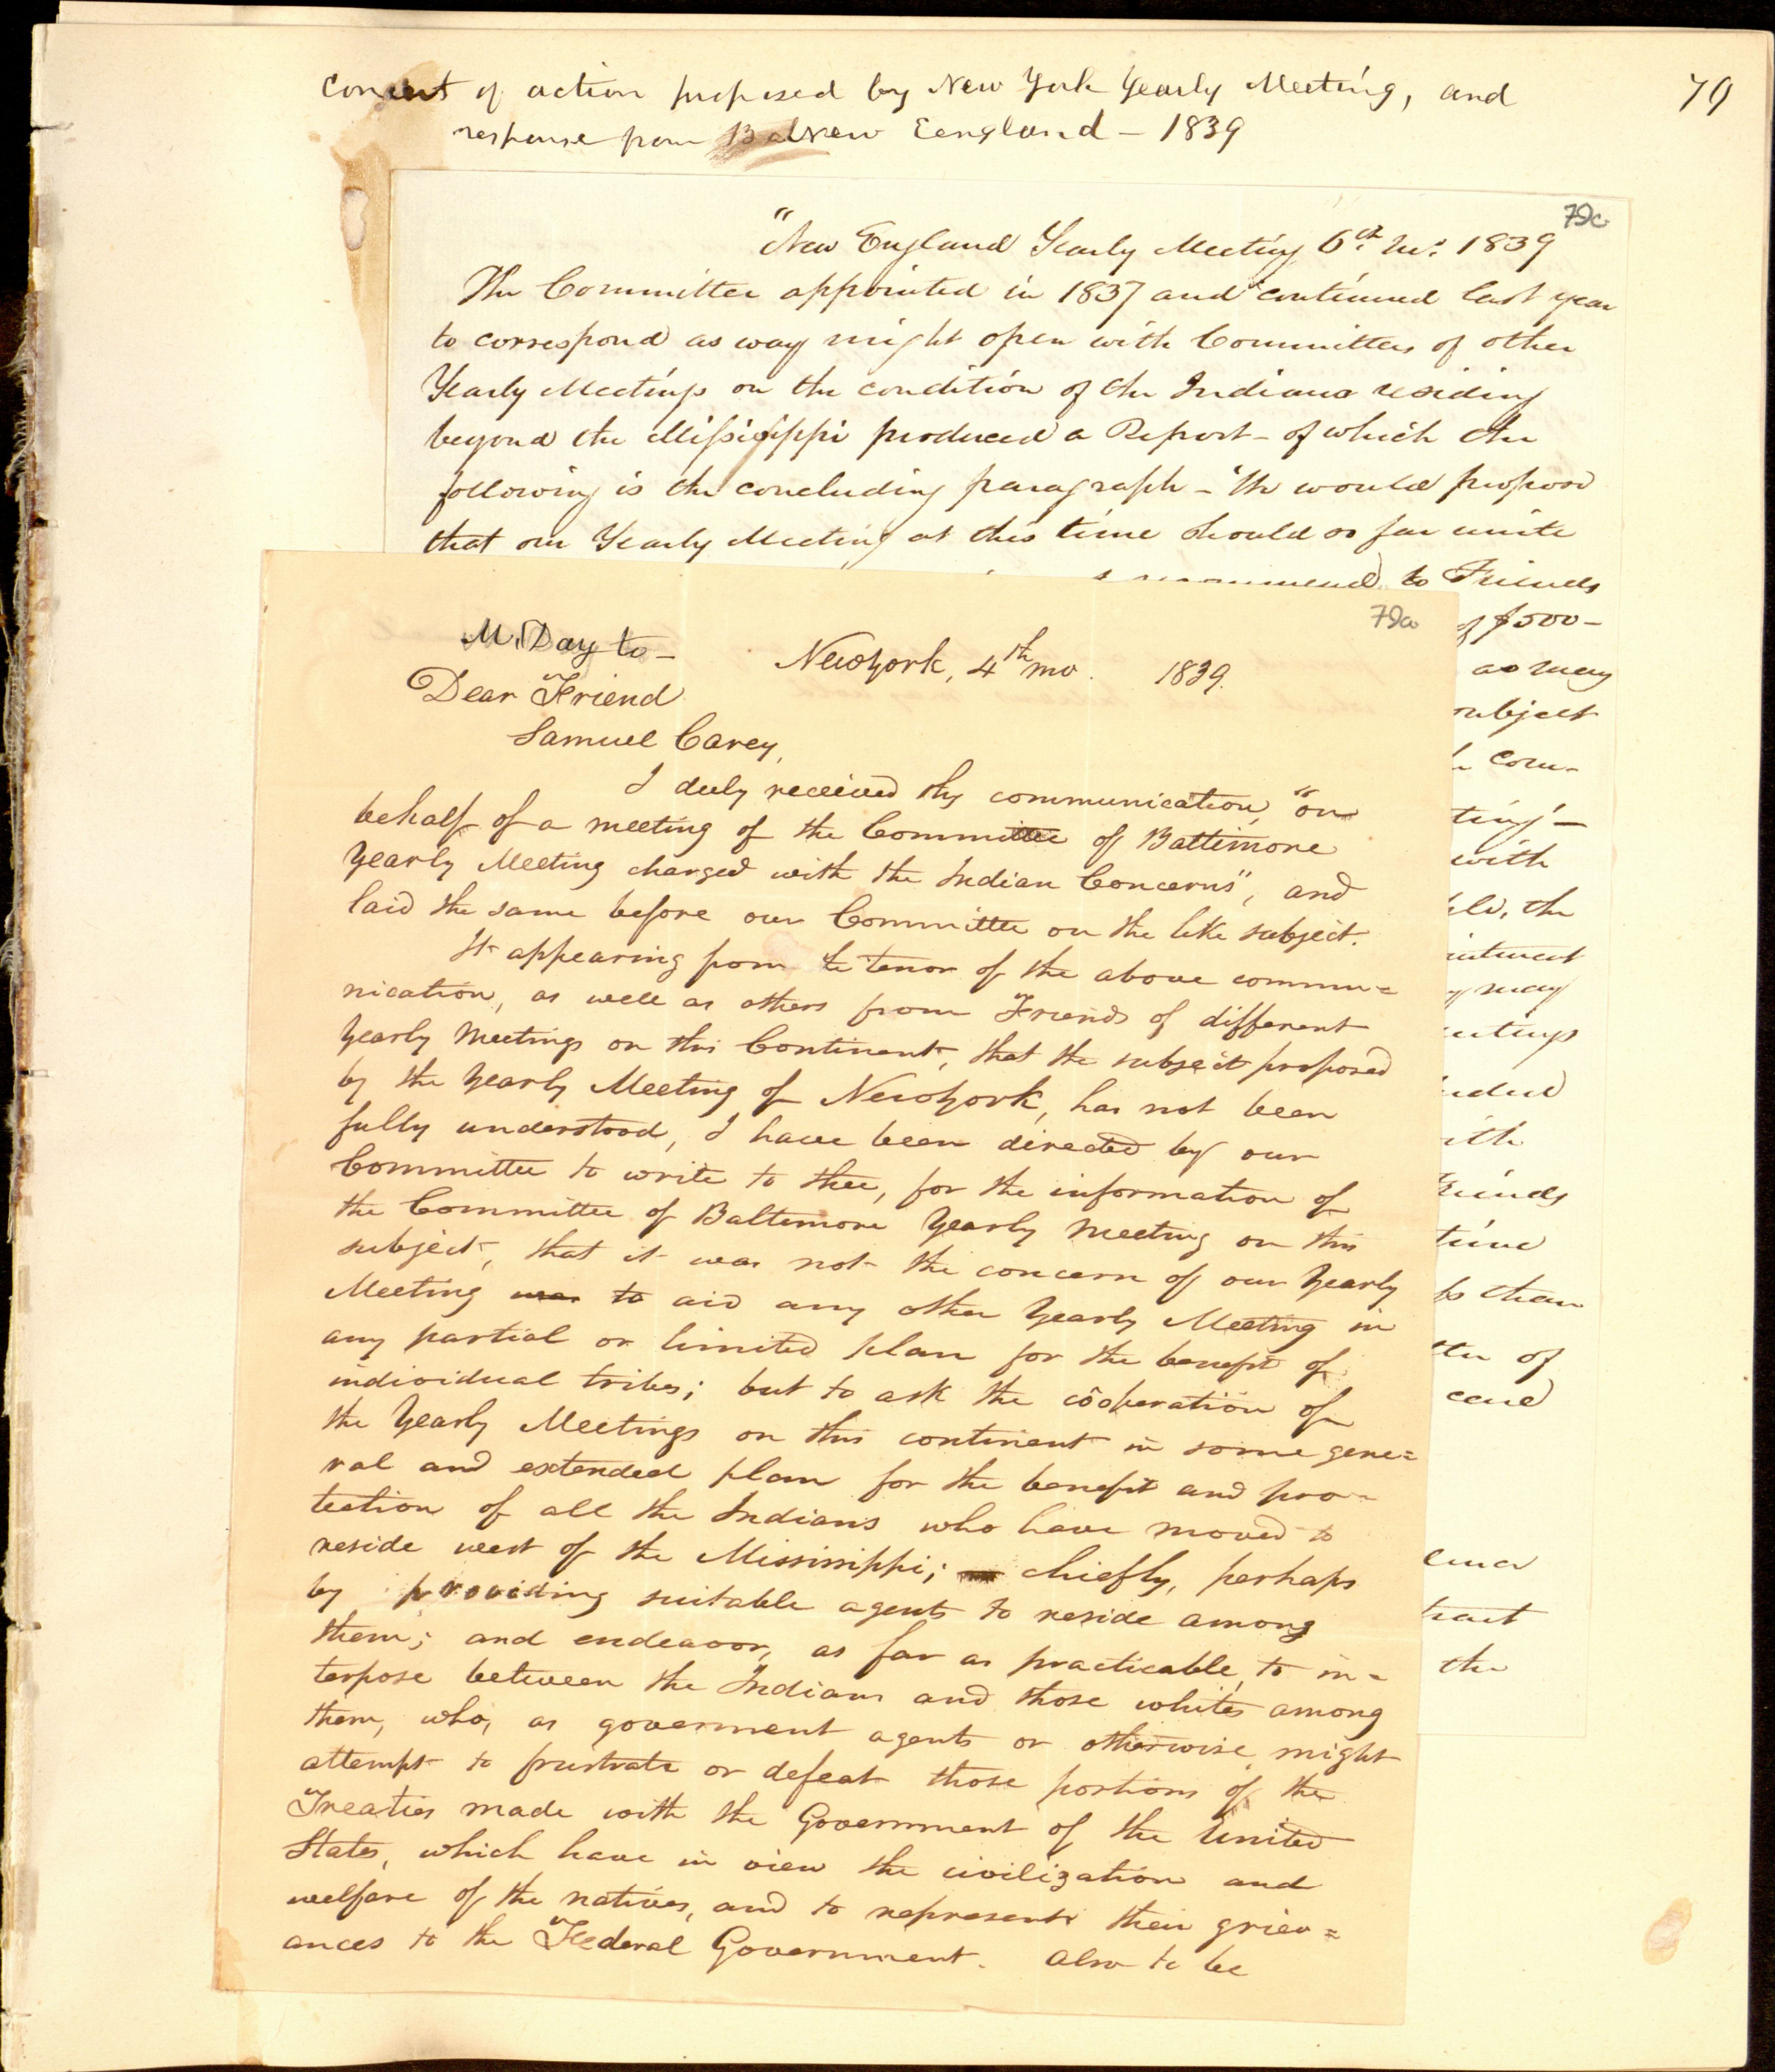 Concert of action proposed by New York Yearly Meeting, and
79
response from Bal New Eengland — 1839
79c
"New England Yearly Meeting 6th Mo. 1839
The Committee appointed in 1837 and continued last year
to correspond as way might open with Committees of other
Yearly Meetings on the condition of the Indians residing
beyond the Missisippi produced a Report - of which the
following is the concluding paragraph -
that our Yearly Meeting at this time should so far unite
to Friends
of $500—
as may
subject
com-
ting—
with
the
may
ith
Friends
time
than
of
the
79a
M. Day to —
Newyork, 4th mo. 1839.
Dear Friend
Samuel Carey,
I duly received thy communication, "on
behalf of a meeting of the Committee of Baltimore
Yearly Meeting charged with the Indian Concerns", and
laid the same before our Committee on the like subject.
It appearing from te tenor of the above commu=
nication, as well as others from Friends of different
Yearly Meetings on this Continent, that the subject proposed
by the Yearly Meeting of Newyork, has not been
fully understood, I have been directed by our
Committee to write to thee, for the information of
the Committee of Baltimore Yearly Meeting on this
subject, that it was not the concern of our Yearly
Meeting was to aid any other Yearly Meeting in
any partial or limited plan for the benefit of
individual tribes; but to ask the coöperation of
the Yearly Meetings on this continent in some gene=
ral and extended plan for the benefit and pro-
tection of all the Indians who have moved to
reside west of the Mississippi; chiefly, perhaps
by providing suitable agents to reside among
them; and endeavor, as far as practicable, to in=
terpose between the Indians and those whites among
them, who, as goverment agents or otherwise, might
attempt to frustrate or defeat those portions of the
Treaties made with the Government of the United
States, which have in view the civilization and
welfare of the natives, and to represent their griev=
ances to the Federal Government. Also to be